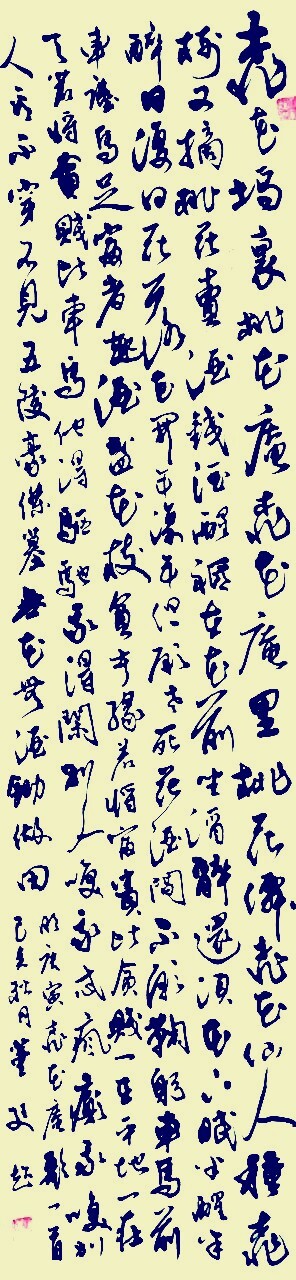 桃花塢裏桃花庵桃花庵里桃花僊桃花仙人種桃
樹又摘桃花賣酒錢酒醒祗在花前坐酒醉還須花下眠半醒半
醉日復日花落花開年復年但願老死花酒間不願鞠躬車馬前
車塵馬足富者趣酒盞花枝貧者緣若將富貴比貧賤一在平地一在
天若將貧賤比車馬他得驅馳我得閑別人笑我忒瘋癲我笑別
人看不穿不見五陵豪傑墓無花無酒鋤做田
明唐寅桃花庵歌一首
己亥秋月董